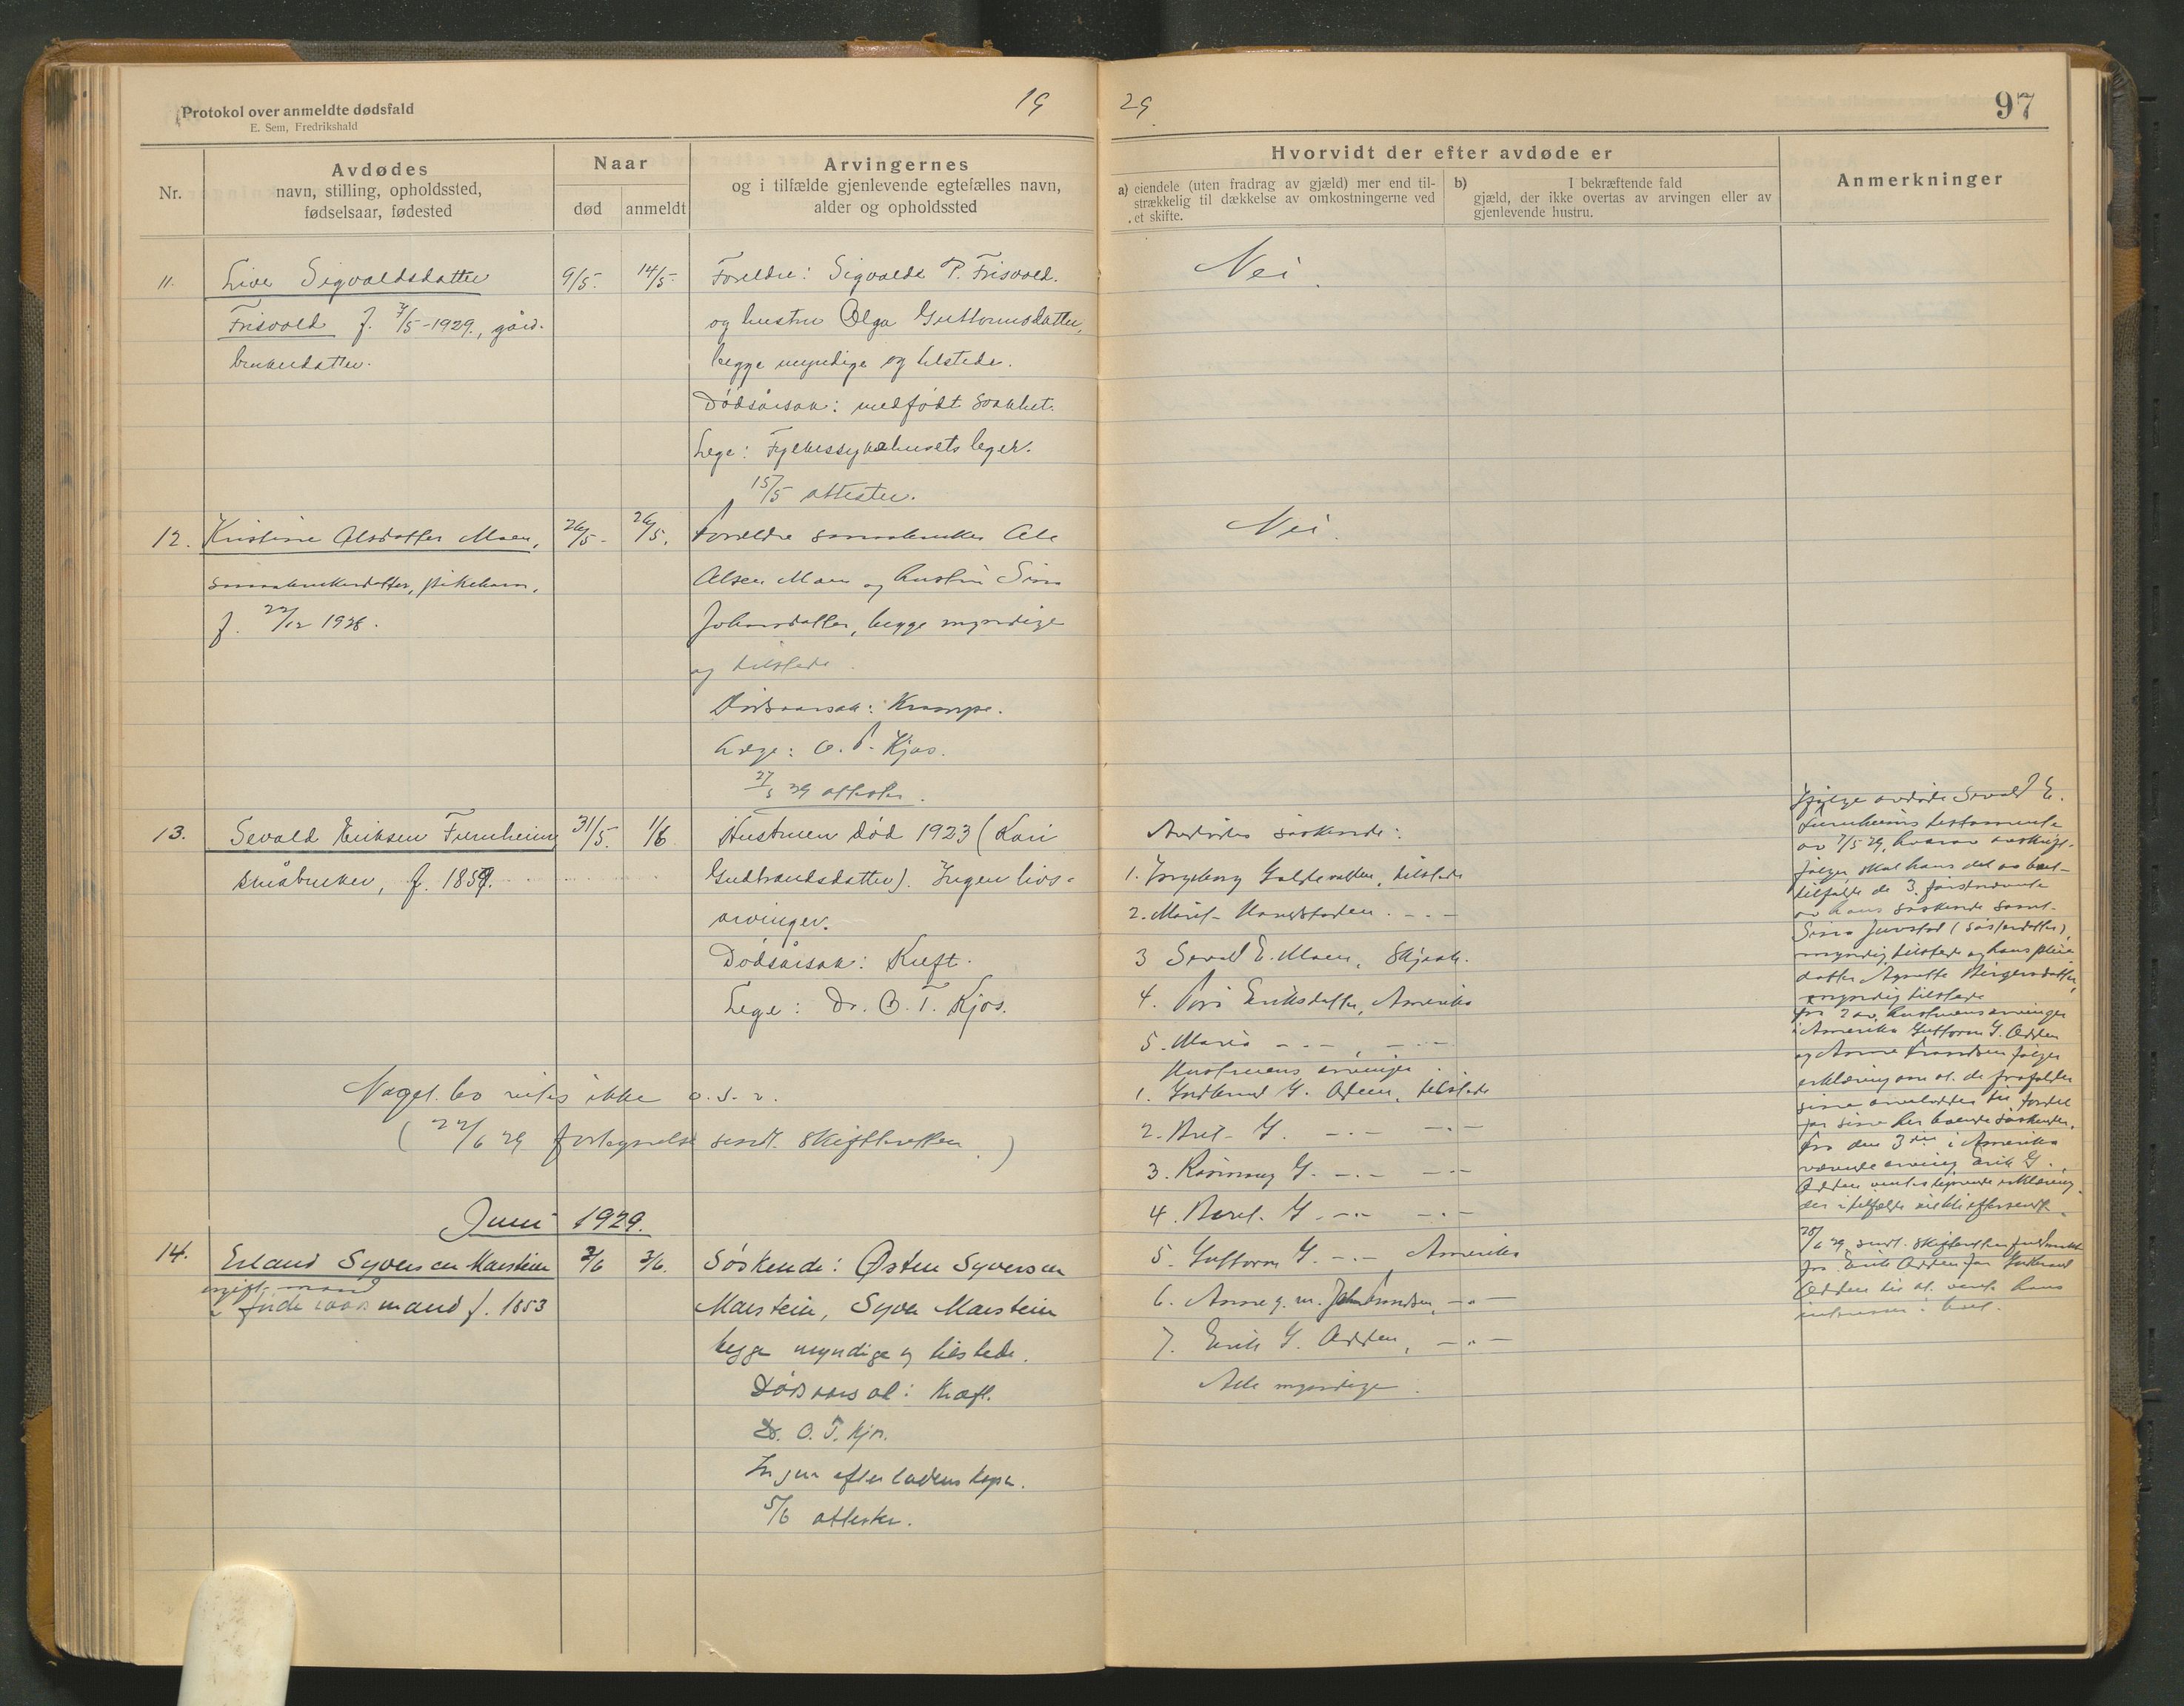 Protokol over anmeldte dødsfald
E. Sem, Fredrikshald
19
29.
97
Nr.
Avdødes
navn, stilling, opholdssted,
fødselsaar, fødested
Naar
død
anmeldt
Arvingernes
og i tilfælde gjenlevende egtefælles navn,
alder og opholdssted
Hvorvidt der efter avdøde er
a) eiendele (uten fradrag av gjæld) mer end til-
strækkelig til dækkelse av omkostningerne ved
et skifte.
b) I bekræftende fald
gjæld, der ikke overtas av arvingen eller av
gjenlevende hustru.
Anmerkninger
11.
Live Sigvaldsdatter
Frisvold f. 7/5-1929., gård-
brukerdatter.
9/5.
14/5.
Foreldre: Sigvald P. Frisvold.
og hustru Olga Guttormsdatter,
begge myndige og tilstede.
Dødsårsak: medfødt svakhet.
Lege: Fylkessykehusets leger.
15/5 attester.
Nei.
12.
Kristine Olsdatter Moen,
smaabrukerdatter, pikebarn,
f. 22/12 1928.
26/5.
26/5.
Foreldre smaabruker Ole
Olsen Moen og hustru Sina
Johansdatter, begge myndige
og tilstede.
Dødsaarsak: Krampe.
Læge: O. T. Kjos.
27/5 29 attester.
Nei.
13.
Sevald Eriksen Furuheim
småbruker, f. 1859.
31/5.
1/6.
Hustruen død 1923 (Kari
Gudbrandsdatter). Ingen livs-
arvinger.
Dødsårsak: Kreft.
Lege: Dr. O. T. Kjos.
Nogel. bo rites ikke o. s. v.
(22/6 29 fortegnelse sendt skifteretten.)
Avdødes søskende:
1. Ingeborg, tilstede
2. Marit
3 Sevald E. Moen, Skjaak.
4. Eriksdatter, Amerika
5. Maria - - - , - - -
Hustruens arvinger.
1. Gudbrand G. Odden, tilstede
2. Brit G. - - - - -
3. Rønnaug G. - - - - -
4. Beret G. - - - - -
5. Guttorm G. - - Amerika
6. Anne g. m. John - - -
7. Erik G. Odden, - - -
Alle myndige.
Ifølge avdøde Sevald E.
Furuheims testamente
av 7/5 29, hvorav avskrift
følger, skal hans del av boet
tilfalde de 3 førstnævnte
av hans søskende samt
Sina (søsterdatter),
myndig, tilstede og hans pleie-
datter Agnethe Birgersdatter,
myndig, tilstede
Fra 2 av hustruens arvinger
i Amerika Guttorm G. Odden
og Anne følger
erklæring om at de frafalder
sine arvelodder til fordel
for sine her boende søskende.
Fra den 3die i Amerika
værende arving Erik G.
Odden ventes lignende erklæring,
der i tilfælde vil bli eftersendt.
28/6 29 sendt skifteretten fuldmakt
fra Erik Odden for Gudbrand
Odden til at vareta hans
interesser i boet.
Juni 1929.
14.
Erland Syversen Marstein
ugift mand
f. 1853
2/6
3/6.
Søskende: Østen Syversen
Marstein, Syver Marstein
begge myndige og tilstede.
Dødsaarsak: Kræft.
Dr. O. T. Kjos.
Ingen efterladenskaper.
5/6 attester.